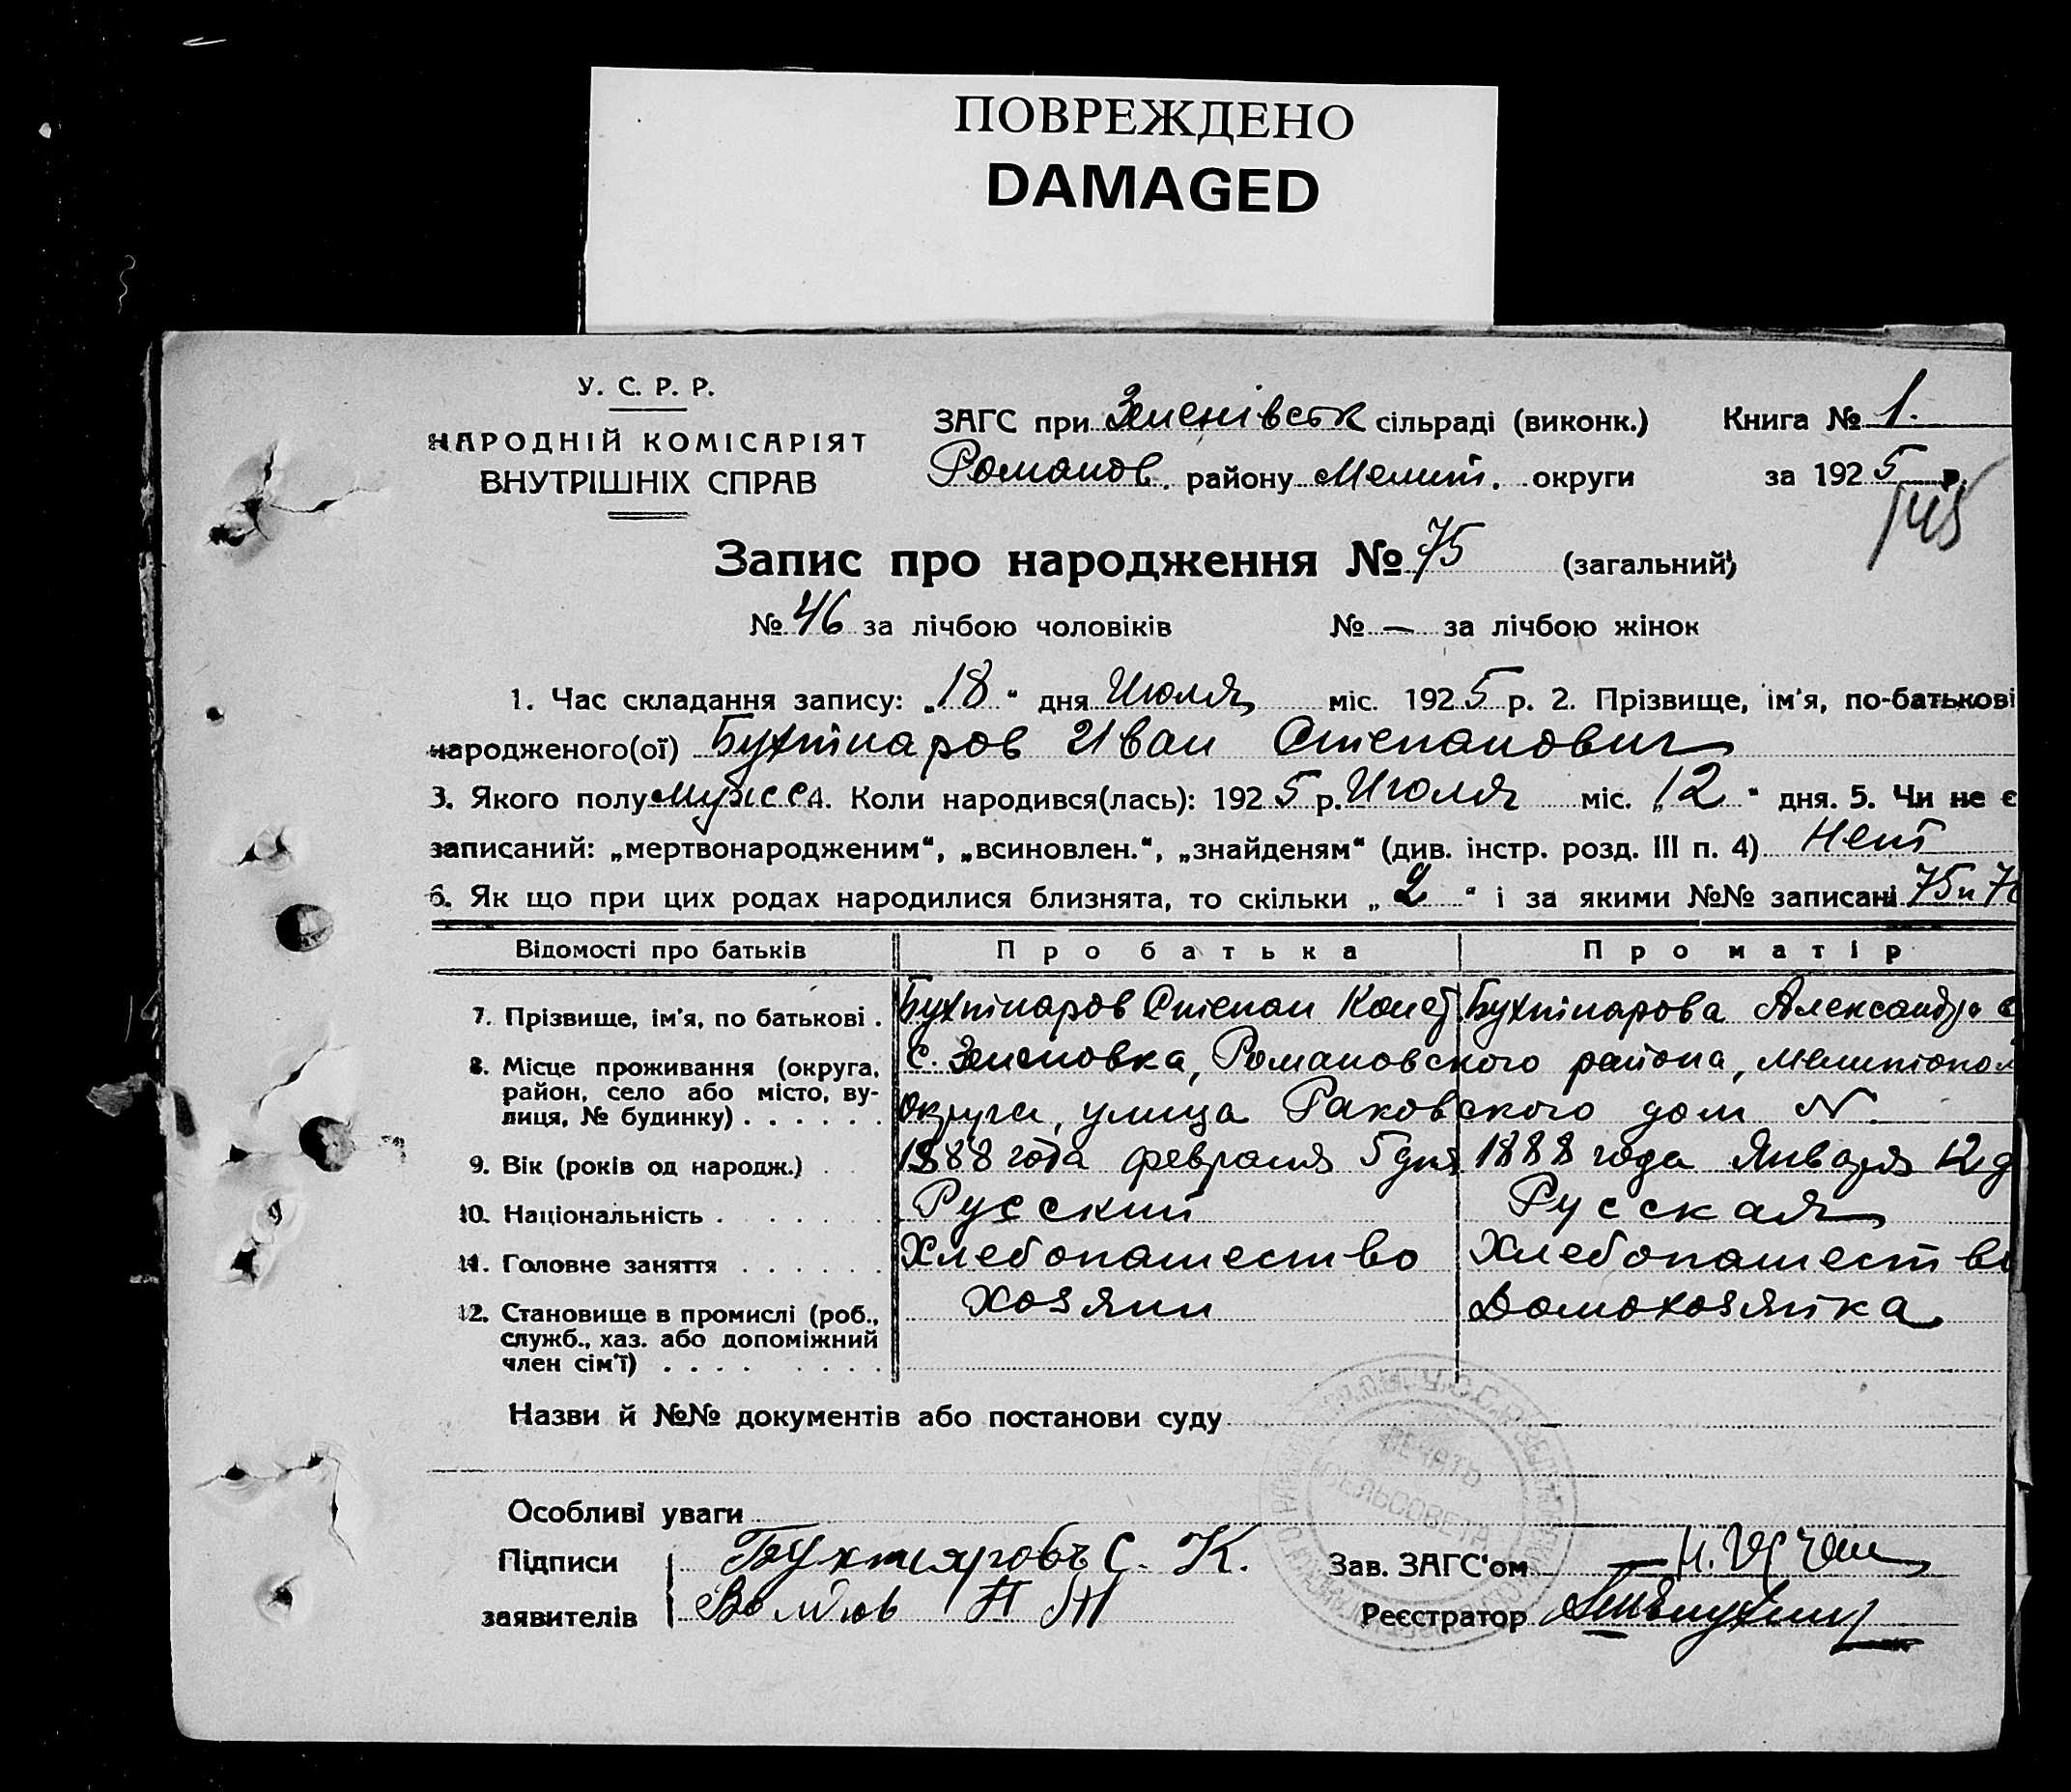 ПОВРЕЖДЕНО
DAMAGED
У. С. Р. Р.
НАРОДНІЙ КОМІСАРІЯТ
ВНУТРІШНІХ СПРАВ
ЗАГС при Зеленівськ сільраді (виконк.) Книга № 1.
Романов. району Мелит. округи за 1925 р.
145
Запис про народження № 75 (загальний)
№ 46 за лічбою чоловіків № — за лічбою жінок
1. Час складання запису: „18“ дня Июля міс. 1925 р. 2. Прізвище, ім'я, по-батькові
народженого(ої) Бухтіаров Иван Степанович
3. Якого полу мужс. 4. Коли народився(лась): 1925 р. Июля міс. „12“ дня. 5. Чи не є
записаний: „мертвонародженим“, „всиновлен.“, „знайденям“ (див. інстр. розд. III п. 4) Нет
6. Як що при цих родах народилися близнята, то скільки „2“ і за якими №№ записані 75 и 76
Відомості про батьків Про батька Про матір
7. Прізвище, ім'я, по батькові . Бухтіаров Степан Конст Бухтіарова Александра
8. Місце проживання (округа, с. Зеленовка, Романовского района, Мелитопол
район, село або місто, ву-
лиця, № будинку) . . . . . . Округи, улица Раковского дом №
9. Вік (років од народж.) . . 1888 года февраля 5 дня 1888 года Января 12 д
10. Національність . . . . . . Русский Русская
11. Головне заняття . . . . . . Хлебопашество Хлебопашество
12. Становище в промислі (роб., Хозяин Домохозяйка
служб., хаз. або допоміжний
член сім'ї) . . . . . . . .
Назви й №№ документів або постанови суду
ПЕЧАТЬ
СЕЛЬСОВЕТА
Особливі уваги
Підписи Бухтияровъ С. К. Зав. ЗАГС'ом
заявителів Реєстратор